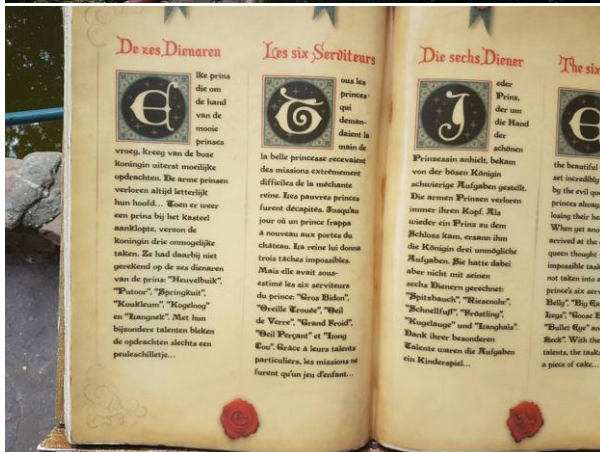 De zes Dienaren
Elke prins
die om
de hand
van de
mooie
prinses
vroeg, kreeg van de boze
koningin uiterst moeilijke
opdrachten. De arme prinsen
verloren altijd letterlijk
hun hoofd... Toen er weer
een prins bij het kasteel
aanklopte, verzon de
koningin drie onmogelijke
taken. Ze had daarbij niet
gerekend op de zes dienaren
van de prins: "Heuvelbuik",
"Putoor", "Springkuit",
"Koukleum", "Kogeloog"
en "Langnek". Met hun
bijzondere talenten bleken
de opdrachten slechts een
peuleschilletje...
Les six Serviteurs
Tous les
princes
qui
deman-
daient la
main de
la belle princesse recevaient
des missions extrêmement
difficiles de la méchante
reine. Les pauvres princes
furent décapités. Jusqu'au
jour où un prince frappa
à nouveau aux portes du
château. La reine lui donna
trois tâches impossibles.
Mais elle avait sous-
estimé les six serviteurs
du prince: "Gros Bidon",
"Oreille Trouée", "Oeil
de Verre", "Grand Froid",
"Oeil Perçant" et "Long
Cou". Grâce à leurs talents
particuliers, les missions ne
furent qu'un jeu d'enfant...
Die sechs Diener
Jeder
Prinz,
der um
die Hand
der
schönen
Prinzessin anhielt, bekam
von der bösen Königin
schwierige Aufgaben gestellt.
Die armen Prinzen verloren
immer ihren Kopf. Als
wieder ein Prinz zu dem
Schloss kam, ersann ihm
die Königin drei unmögliche
Aufgaben. Sie hatte dabei
aber nicht mit seinen
sechs Dienern gerechnet:
"Spitzbauch", "Riesenohr",
"Schnellfuß", "Fröstling",
"Kugelauge" und "Langhals".
Dank ihrer besonderen
Talente waren die Aufgaben
ein Kinderspiel...
The six
E
the beautiful
set incredibly
by the evil qu
princes alway
losing their hea
When yet ano
arrived at the
queen thought
impossible task
not taken into a
prince's six serv
Belly", "Big Ea
Legs", "Goose B
"Bullet Eye" an
Neck". With the
talents, the task
a piece of cake...